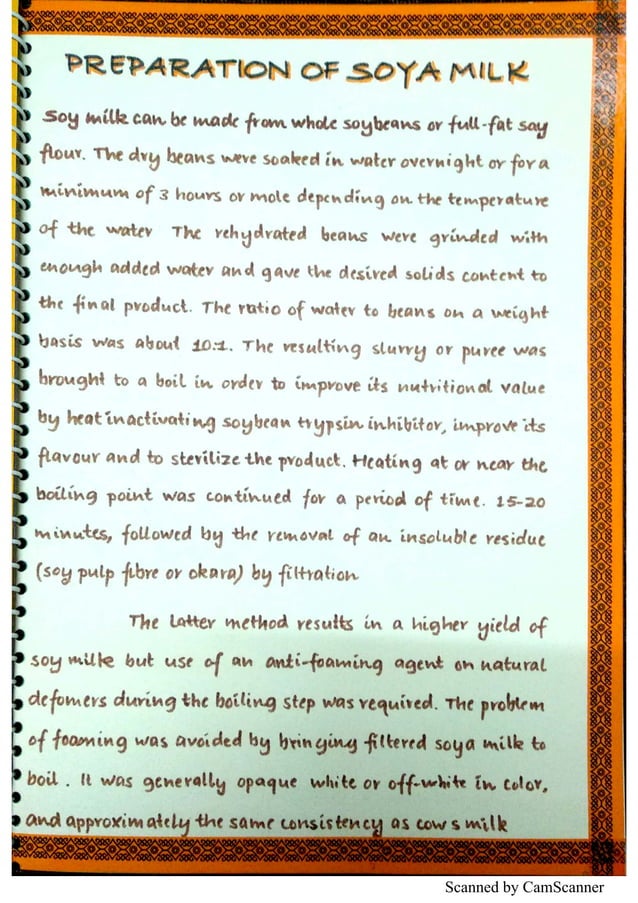 PREPARATION OF SOYA MILK
Soy milk can be made from whole soybeans or full-fat say
flour. The dry beans were soaked in water overnight or for a
minimum of 3 hours or mole depending on the temperature
of the water The rehydrated beans were grinded with
enough added water and gave the desired solids content to
the final product. The ratio of water to beans on a weight
basis was about 10:1. The resulting slurry or puree was
brought to a boil in order to improve its nutritional value
by heat inactivating soybean trypsin inhibitor, improve its
flavour and to sterilize the product. Heating at or near the
boiling point was continued for a period of time. 15-20
minutes, followed by the removal of an insoluble residue
(soy pulp fibre or okara) by filtration
The Latter method results in a higher yield of
soy milk but use of an anti-foaming agent on natural
defomers during the boiling step was required. The problem
of foaming was avoided by bringing filtered soya milk to
boil. It was generally opaque white or off-white in color,
and approximately the same consistency as cow s milk
Scanned by CamScanner